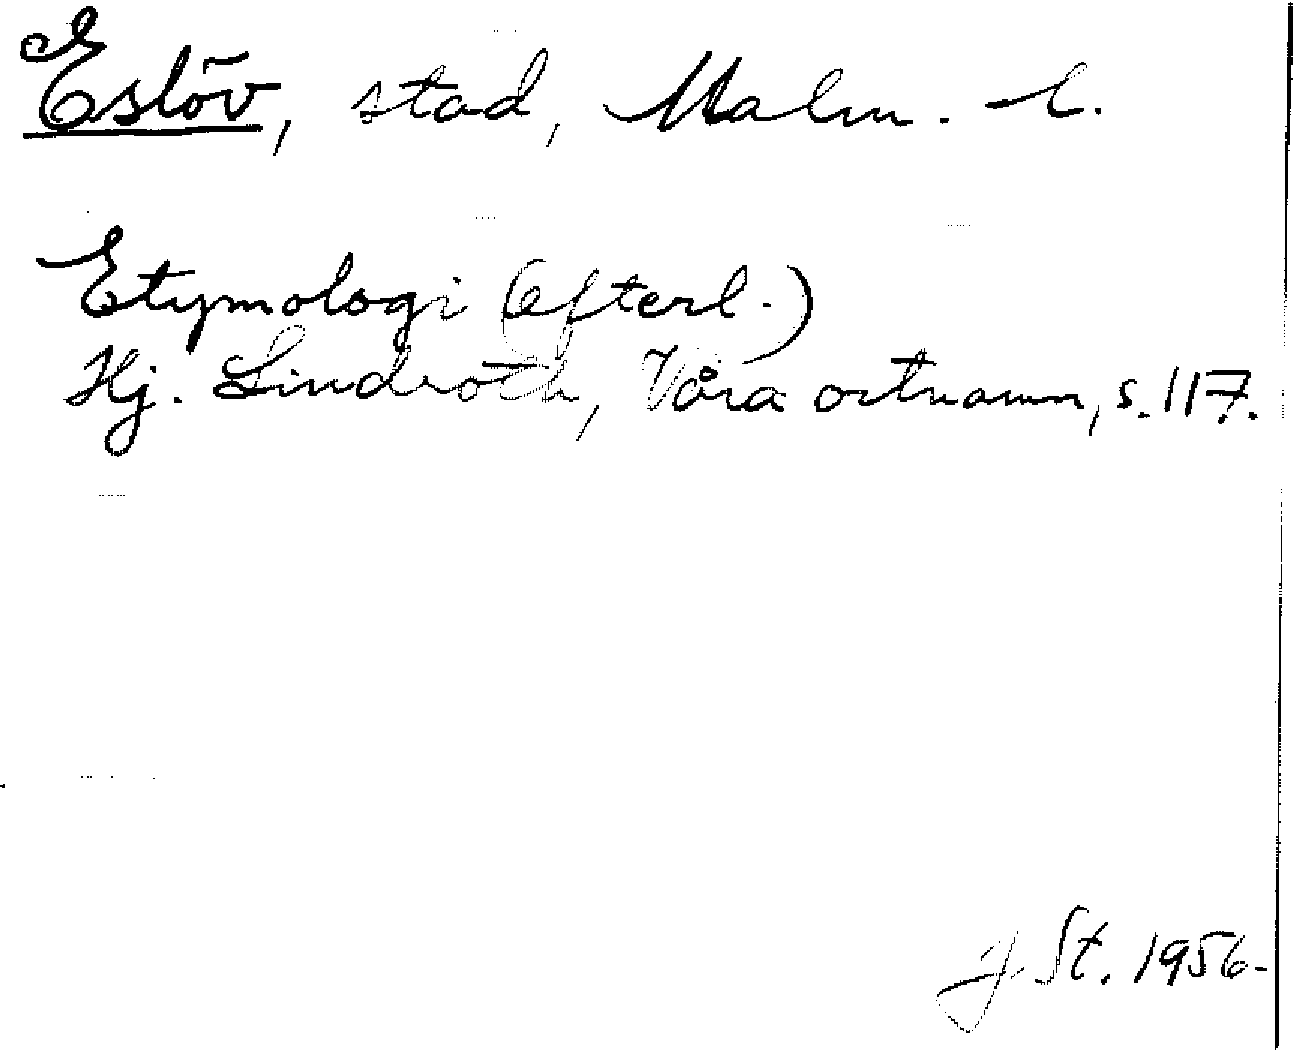 Eslöv, stad, Malm. l.
Etymologi (efterl.)
Hj. Lindroth, Våra ortnamn, s. 117.
J. St. 1956.